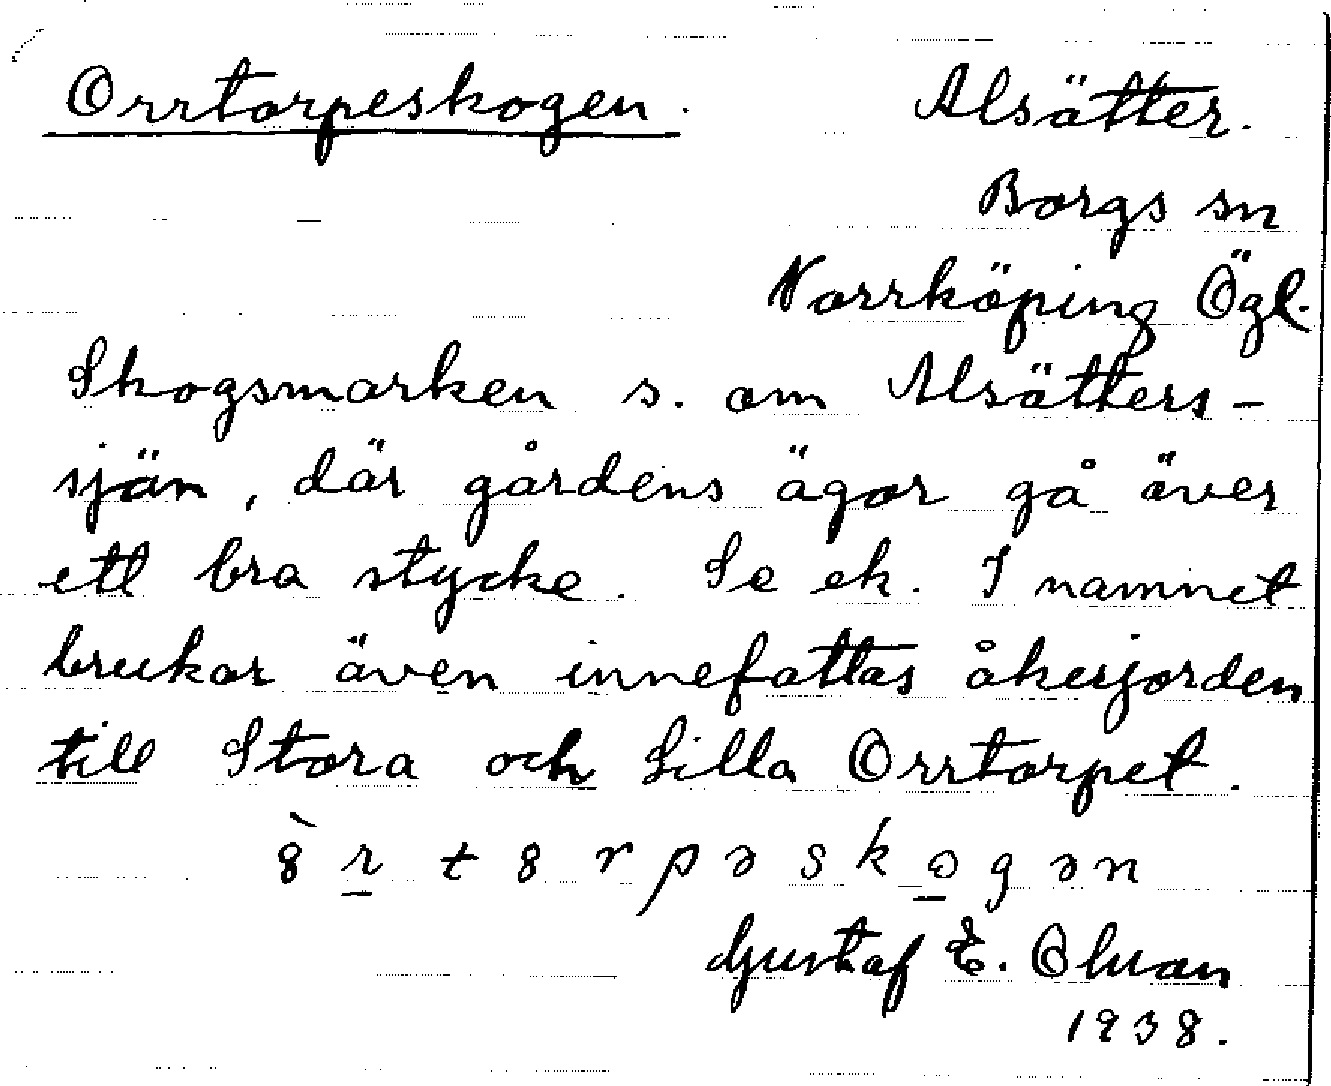 Orrtorpeskogen. Alsätter.
Borgs sn
Norrköping Ögl.
Skogsmarken s. om Alsätters-
sjön, där gårdens ägor gå över
ett bra stycke. Se ek. I namnet
brukar även innefattas åkerjorden
till Stora och Lilla Orrtorpet.
Gustaf E. Olson
1938.